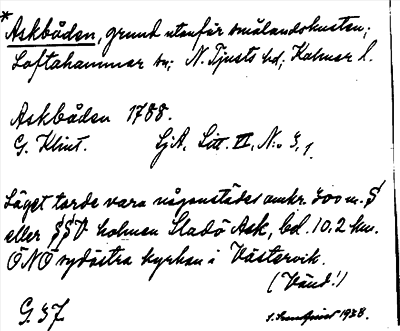 * Askbåden, grund utanför smålandskusten;
Loftahammar sn; N. Tjusts hd; Kalmar l.
Askbåden 1788.
G. Klint. SjA, Litt. VI, N:o 3,1.
Läget torde vara någonstädes omkr. 300 m. S
eller SSV holmen Sladö Ask, bel. 10.2 km.
ÖNÖ sydöstra kyrkan i Västervik.
(Vänd!)
G. 37. 1938.